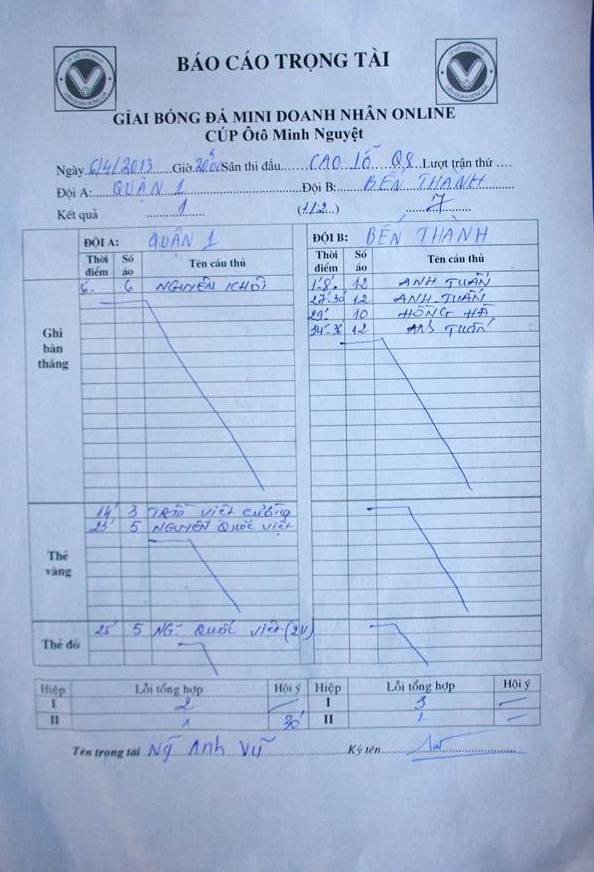 BÁO CÁO TRỌNG TÀI
GIẢI BÓNG ĐÁ MINI DOANH NHÂN ONLINE
CÚP Ôtô Minh Nguyệt
Ngày 6/4/2013 Giờ Sân thi đấu CAO LỖ Q8 Lượt trận thứ
Đội A: QUẬN 1 Đội B: BẾN THÀNH
Kết quả 1 (1/2) 7
ĐỘI A: QUẬN 1 ĐỘI B: BẾN THÀNH
Thời điểm Số áo Tên cầu thủ Thời điểm Số áo Tên cầu thủ
Ghi bàn thắng
6 NGUYÊN KHÔI 12 ANH TUẤN
27-30 12 ANH TUẤN
29' 10 HỒNG HÀ
12 ANH TUẤN
Thẻ vàng
14' 3 TRẦN VIỆT CƯỜNG
25' 5 NGUYỄN QUỐC VIỆT
Thẻ đỏ
25' 5 NG- QUỐC VIỆT (2V)
Hiệp Lỗi tổng hợp Hội ý Hiệp Lỗi tổng hợp Hội ý
I 2 I 3
II 1 30' II 1
Tên trọng tài Ng Anh Vũ Ký tên